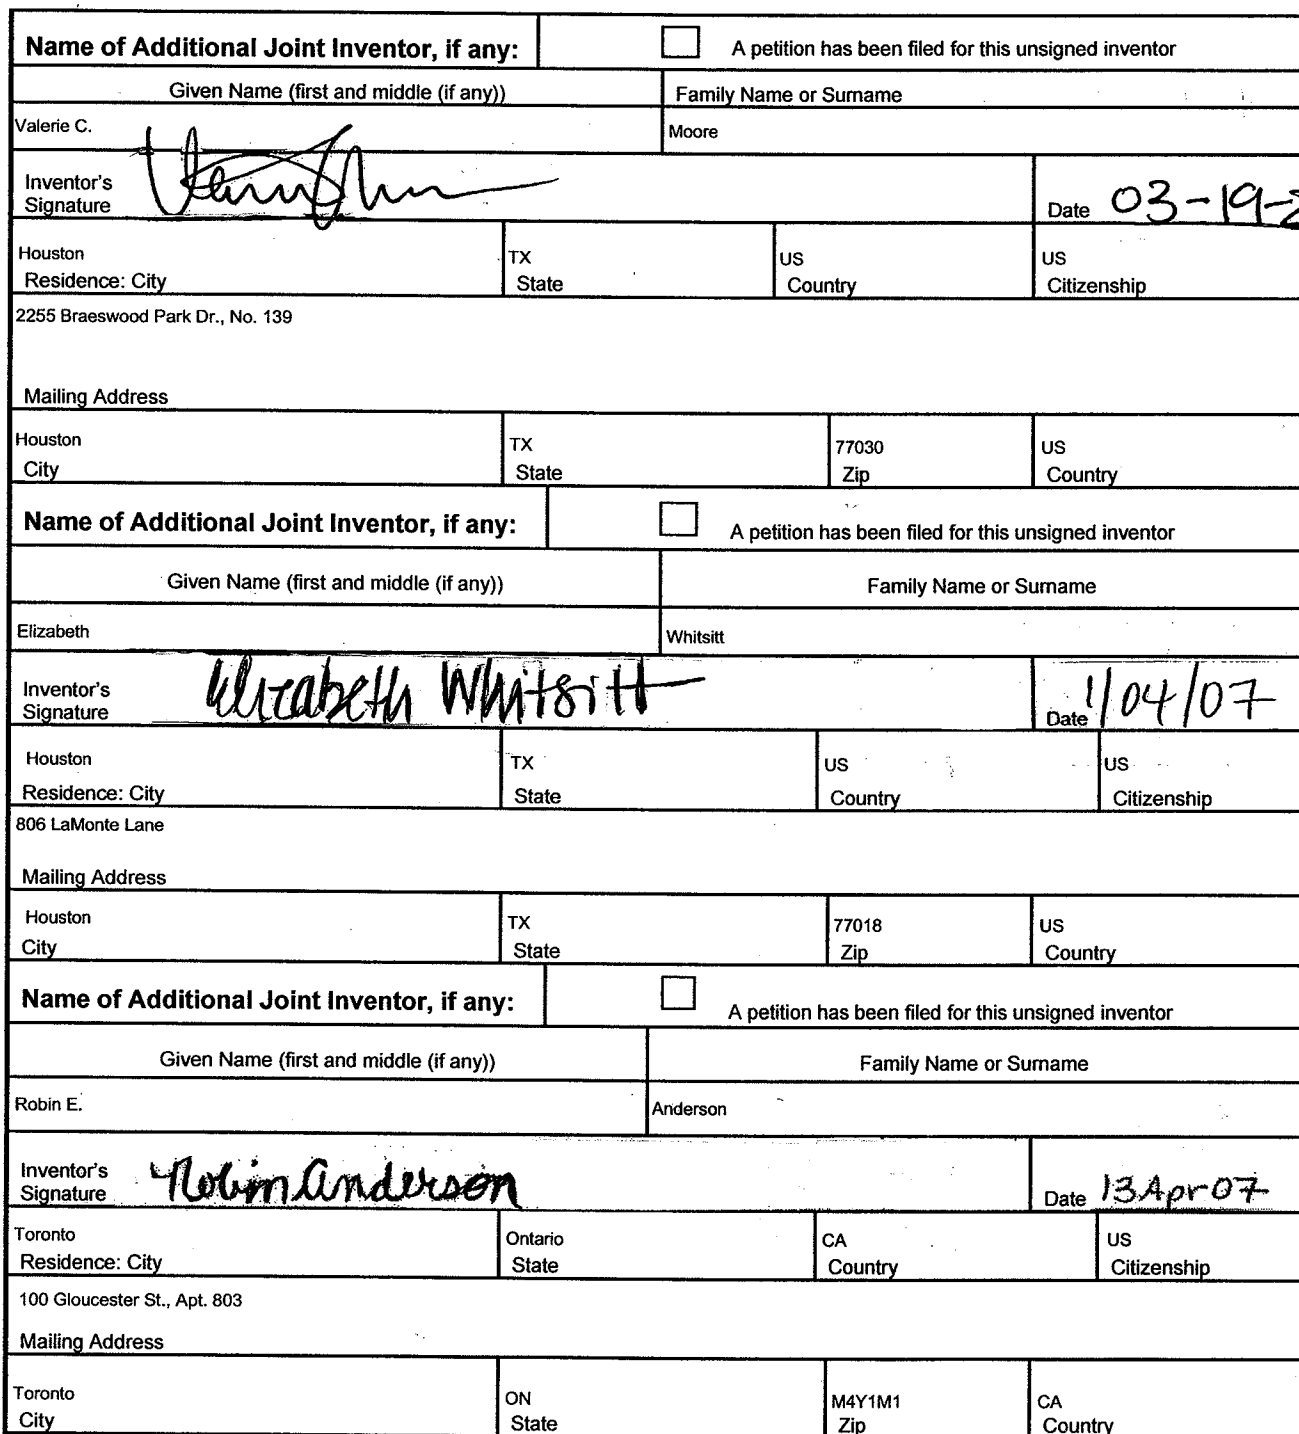 Name of Additional Joint Inventor, if any: A petition has been filed for this unsigned inventor
Given Name (first and middle (if any)) Family Name or Surname
Valerie C. Moore
Inventor's
Signature Date 03-19-2
Houston TX US US
Residence: City State Country Citizenship
2255 Braeswood Park Dr., No. 139
Mailing Address
Houston TX 77030 US
City State Zip Country
Name of Additional Joint Inventor, if any: A petition has been filed for this unsigned inventor
Given Name (first and middle (if any)) Family Name or Surname
Elizabeth Whitsitt
Inventor's
Signature Elizabeth Whitsitt Date 1/04/07
Houston TX US US
Residence: City State Country Citizenship
806 LaMonte Lane
Mailing Address
Houston TX 77018 US
City State Zip Country
Name of Additional Joint Inventor, if any: A petition has been filed for this unsigned inventor
Given Name (first and middle (if any)) Family Name or Surname
Robin E. Anderson
Inventor's
Signature Robin Anderson Date 13 Apr 07
Toronto Ontario CA US
Residence: City State Country Citizenship
100 Gloucester St., Apt. 803
Mailing Address
Toronto ON M4Y1M1 CA
City State Zip Country